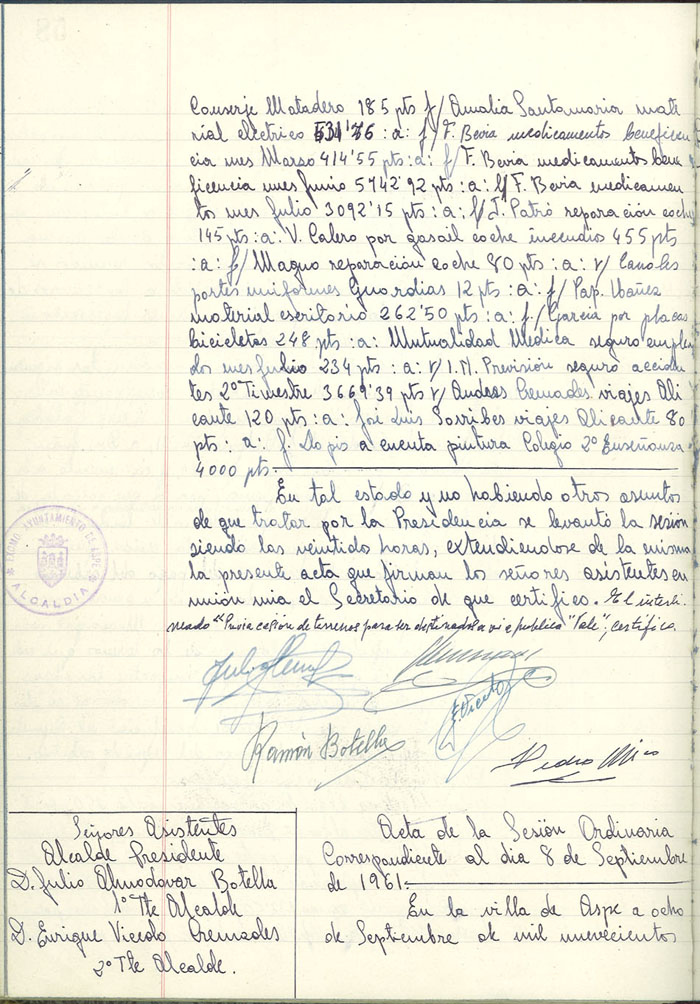 Conserje Matadero 185 pts f/ Amalia Santamaria mate
rial electrico 531'76 :a: f/ F. Bevia medicamentos beneficen
cia mes Marzo 414'55 pts :a: f/ F. Bevia medicamentos bene
ficencia mes Junio 5742'92 pts :a: f/ F. Bevia medicamen
tos mes Julio 3092'15 pts :a: f/ J. Patró reparación coche
145 pts :a: V. Calero por gasoil coche incendio 455 pts
:a: f/ Magno reparación coche 80 pts :a: r/ Canales
portes uniformes Guardias 12 pts :a: f/ Pap. Ibañez
material escritorio 262'50 pts :a: f/ Garcia por placas
bicicletas 248 pts :a: Mutualidad Medica seguro emplea
dos mes Julio 234 pts :a: r/ I.N. Previsión seguro acciden
tes 2º Trimestre 3669'39 pts r/ Andres Cremades viajes Ali
cante 120 pts :a: José Luis Sorribes viajes Alicante 80
pts :a: f. Llopis a cuenta pintura Colegio 2ª Enseñanza
4000 pts
En tal estado y no habiendo otros asuntos
de que tratar por la Presidencia se levantó la sesión
siendo las veintido horas, extendiendose de la misma
la presente acta que firman los señores asistentes en
unión mia el Secretario de que certifico. El interli
neado cesión de terrenos para ser destinados a via publica "Vale", certifico.
E. Vicedo
Ramón Botella
Pedro Mico
EXCMO. AYUNTAMIENTO DE ASPE
ALCALDIA
Señores Asistentes
Alcalde Presidente
D. Julio Almodovar Botella
1º Tte Alcalde
D. Enrique Vicedo Cremades
2º Tte Alcalde.
Acta de la Sesión Ordinaria
Correspondiente al dia 8 de Septiembre
de 1961.
En la villa de Aspe a ocho
de Septiembre de mil novecientos